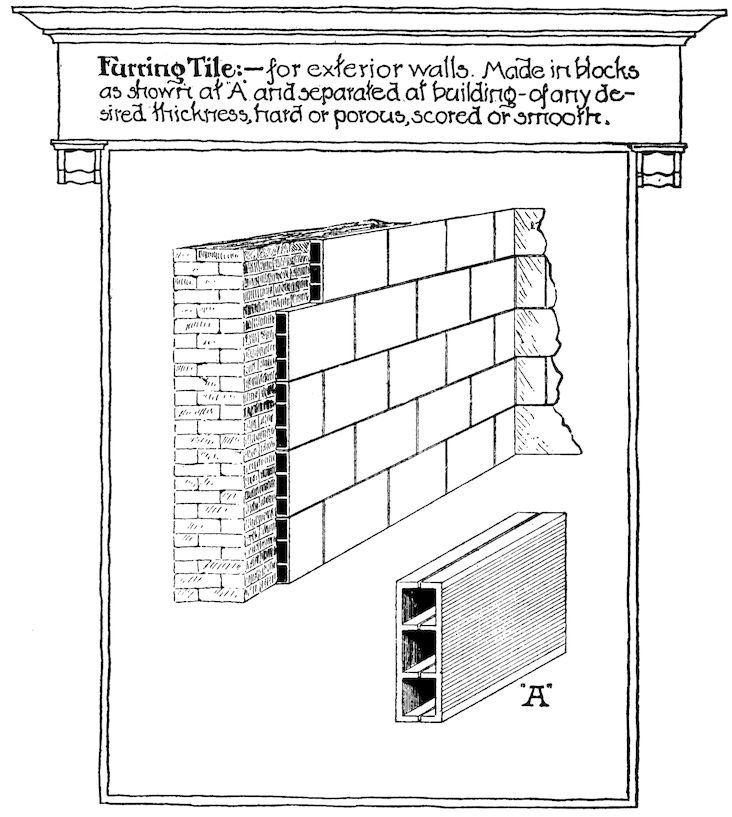 Furring Tile:— for exterior walls. Made in blocks
as shown at "A" and separated at building - of any de-
sired thickness, hard or porous, scored or smooth.
"A"